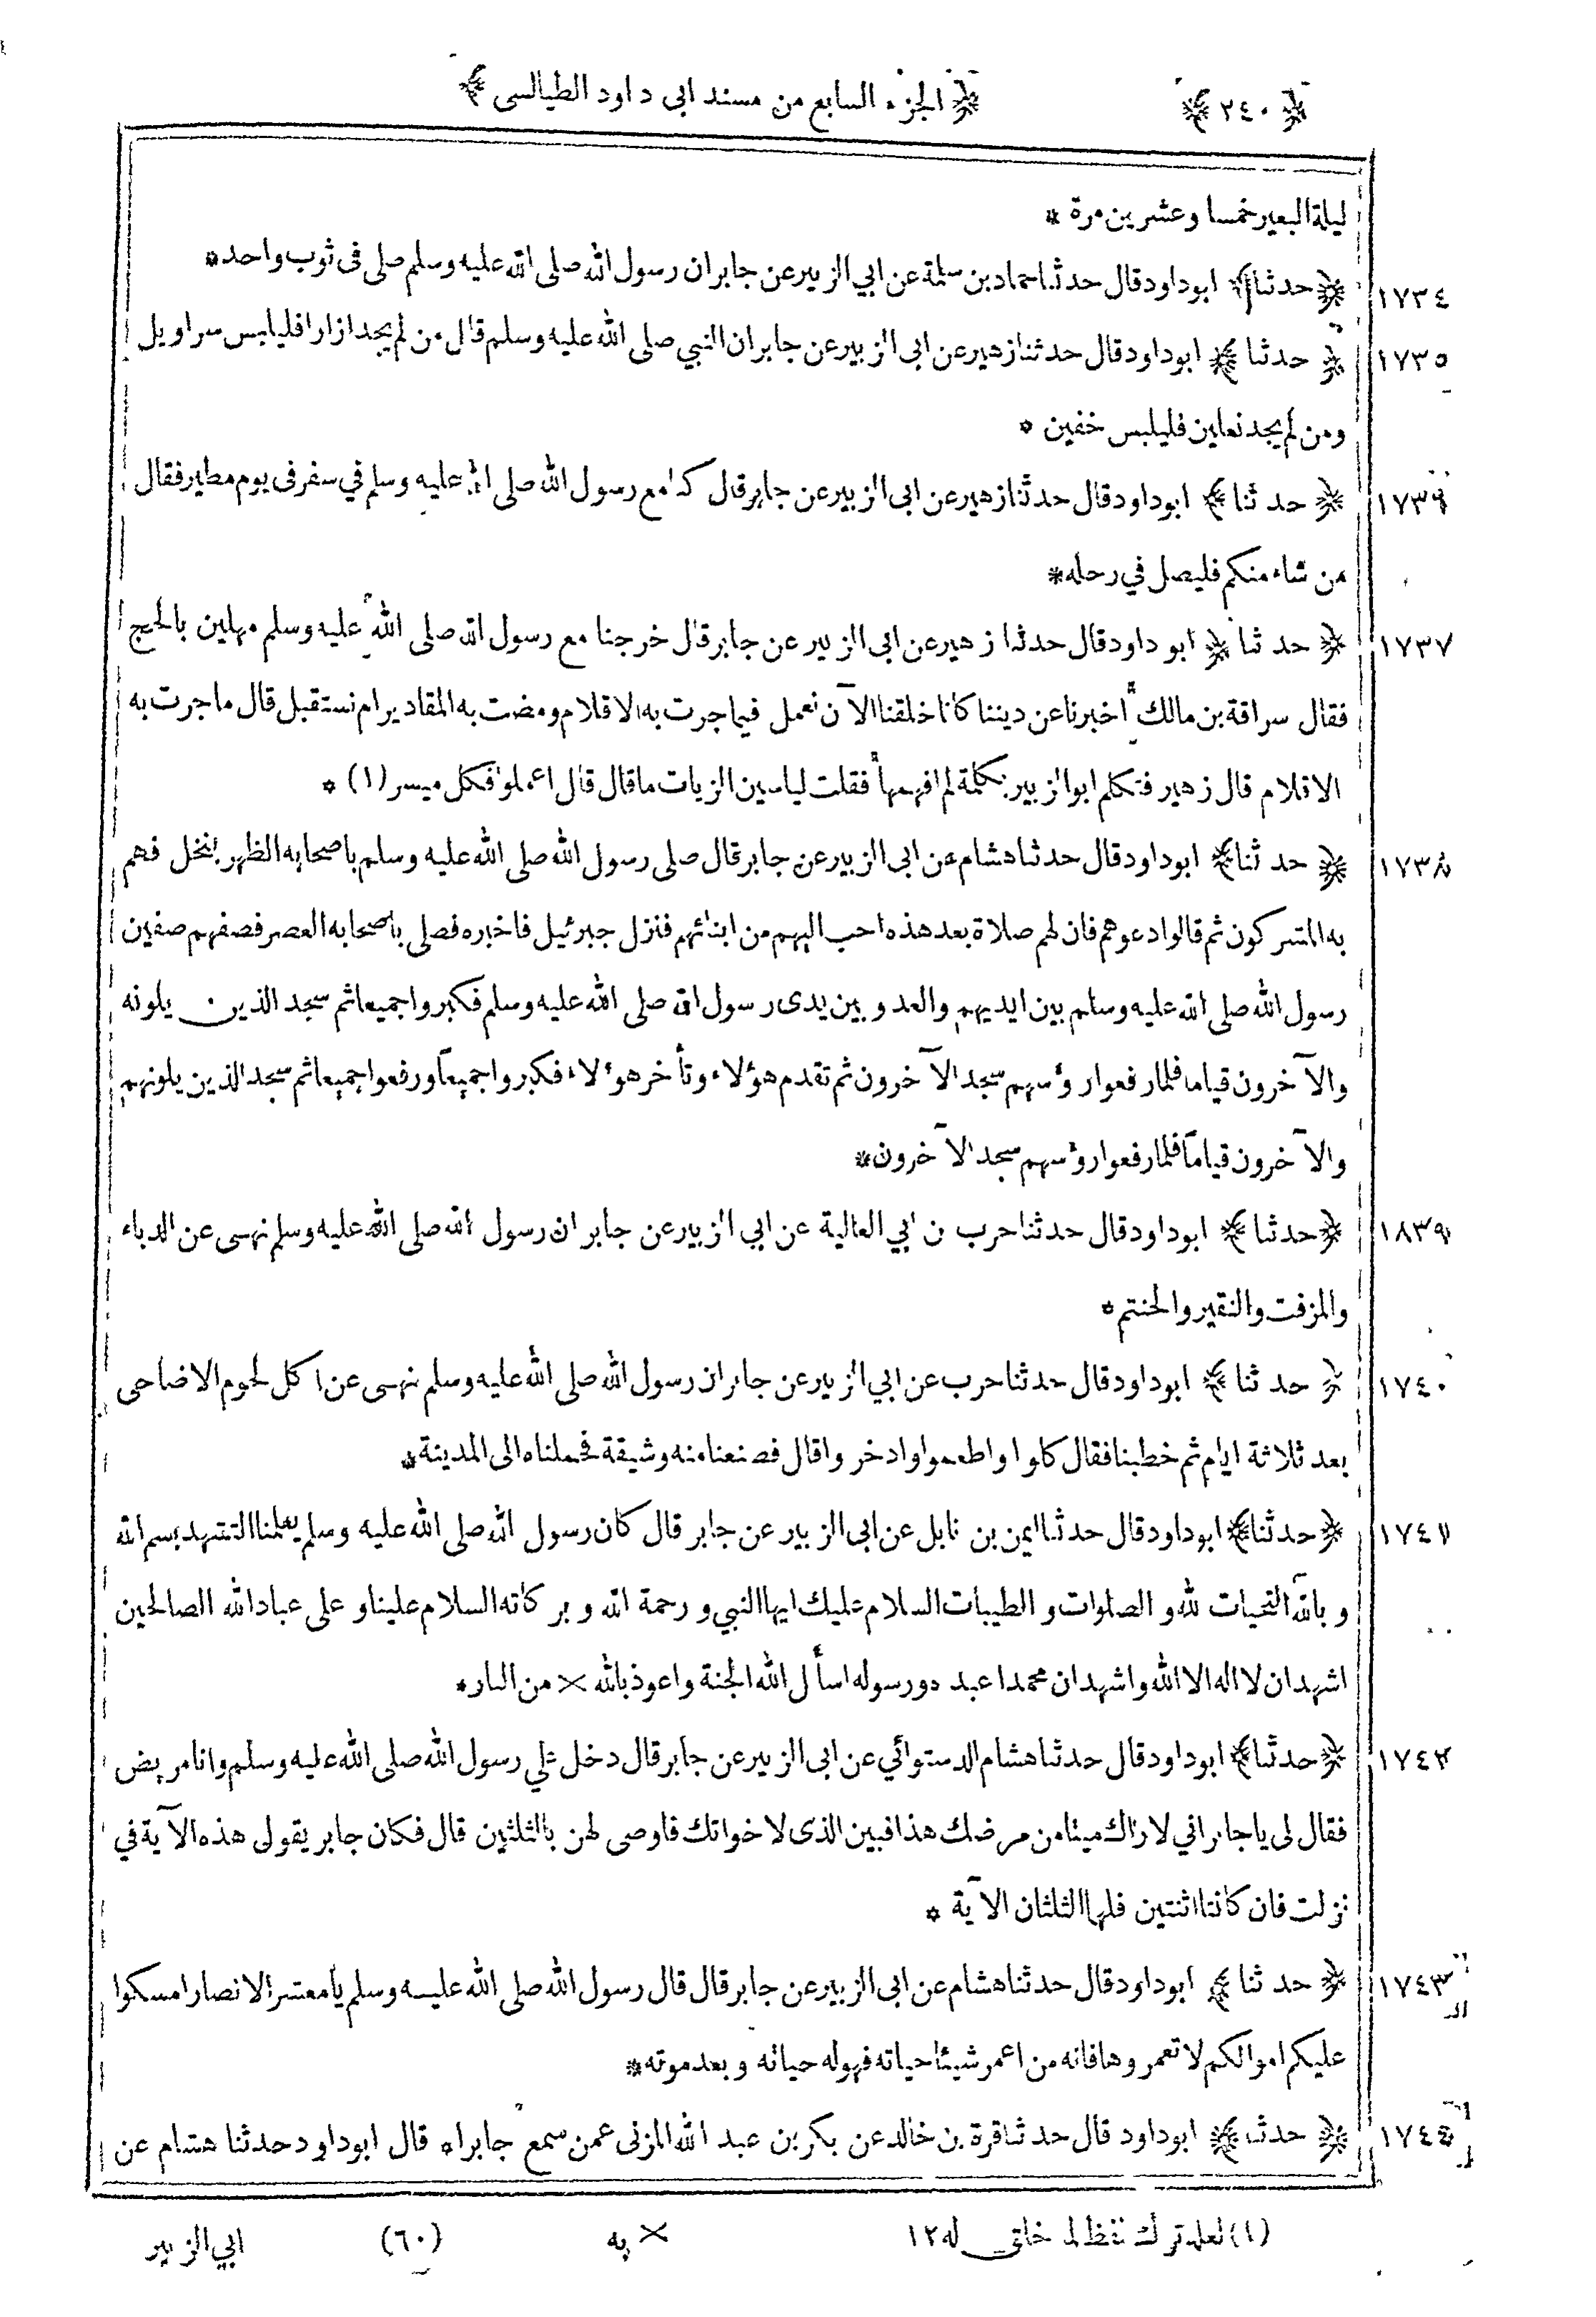 ﴿ ٢٤٠ ﴾ ﴿ الجزء السابع من مسند ابى داود الطيالسى ﴾
ليلة البعير خمسا وعشرين مرة *
١٧٣٤ ﴿ حدثنا ﴾ ابوداود قال حدثنا حماد بن سلمة عن ابي الزبير عن جابر ان رسول الله صلى الله عليه وسلم صلى فى ثوب واحد *
١٧٣٥ ﴿ حدثنا ﴾ ابوداود قال حدثنا زهير عن ابى الزبير عن جابر ان النبي صلى الله عليه وسلم قال من لم يجد ازارا فليلبس سراويل
ومن لم يجد نعلين فليلبس خفين *
١٧٣٦ ﴿ حدثنا ﴾ ابوداود قال حدثنا زهير عن ابى الزبير عن جابر قال كنا مع رسول الله صلى الله عليه وسلم في سفر فى يوم مطير فقال
من شاء منكم فليصل في رحله *
١٧٣٧ ﴿ حدثنا ﴾ ابو داود قال حدثنا زهير عن ابى الزبير عن جابر قال خرجنا مع رسول الله صلى الله عليه وسلم مهلين بالحج
فقال سراقة بن مالك أخبرنا عن ديننا كانا خلقنا الآن نعمل فيما جرت به الاقلام ومضت به المقادير ام نستقبل قال ما جرت به
الاقلام قال زهير فتكلم ابو الزبير بكلمة لم افهمها فقلت لياسين الزيات ما قال قال اعملوا فكل ميسر (١) *
١٧٣٨ ﴿ حدثنا ﴾ ابوداود قال حدثنا هشام عن ابى الزبير عن جابر قال صلى رسول الله صلى الله عليه وسلم باصحابه الظهر بنخل فهم
به المشركون ثم قالوا دعوهم فان لهم صلاة بعد هذه احب اليهم من ابنائهم فنزل جبرئيل فاخبره فصلى باصحابه العصر فصفهم صفين
رسول الله صلى الله عليه وسلم بين ايديهم والعدو بين يدى رسول الله صلى الله عليه وسلم فكبروا جميعا ثم سجد الذين يلونه
والآخرون قياما فلما رفعوا رؤسهم سجد الآخرون ثم تقدم هؤلاء وتأخر هؤلاء فكبروا جميعا ورفعوا جميعا ثم سجد الذين يلونهم
والآخرون قياما فلما رفعوا رؤسهم سجد الآخرون *
١٨٣٩ ﴿ حدثنا ﴾ ابوداود قال حدثنا حرب ن ابي العالية عن ابي الزبير عن جابر ان رسول الله صلى الله عليه وسلم نهى عن الدباء
والمزفت والنقير والحنتم *
١٧٤٠ ﴿ حدثنا ﴾ ابوداود قال حدثنا حرب عن ابي الزبير عن جابر ان رسول الله صلى الله عليه وسلم نهى عن اكل لحوم الاضاحى
بعد ثلاثة ايام ثم خطبنا فقال كلوا واطعموا وادخروا قال فصنعنا منه وشيقة فحملناه الى المدينة *
١٧٤١ ﴿ حدثنا ﴾ ابوداود قال حدثنا ايمن بن نابل عن ابى الزبير عن جابر قال كان رسول الله صلى الله عليه وسلم يعلمنا التشهد بسم الله
و بالله التحيات لله و الصلوات و الطيبات السلام عليك ايها النبي و رحمة الله و بركاته السلام علينا و على عباد الله الصالحين
اشهد ان لا اله الا الله واشهد ان محمدا عبده ورسوله اسأل الله الجنة واعوذ بالله × من النار *
١٧٤٢ ﴿ حدثنا ﴾ ابوداود قال حدثنا هشام الدستوائي عن ابى الزبير عن جابر قال دخل علي رسول الله صلى الله عليه وسلم وانا مريض
فقال لى يا جابر اني لا راك ميتا من مرضك هذا فبين الذى لاخواتك فاوصى لهن بالثلثين قال فكان جابر يقول هذه الآية في
نزلت فان كانتا اثنتين فلهما الثلثان الآية *
١٧٤٣ ﴿ حدثنا ﴾ ابوداود قال حدثنا هشام عن ابى الزبير عن جابر قال قال رسول الله صلى الله عليه وسلم يا معشر الانصار امسكوا
عليكم اموالكم لا تعمروها فانه من اعمر شيئا حياته فهو له حياته و بعد موته *
١٧٤٤ ﴿ حدثنا ﴾ ابوداود قال حدثنا قرة بن خالد عن بكر بن عبد الله المزنى عمن سمع جابرا * قال ابوداود حدثنا هشام عن
(١) لعله ترك لفظ لما خلق له ١٢ × به (٦٠) ابي الزبير